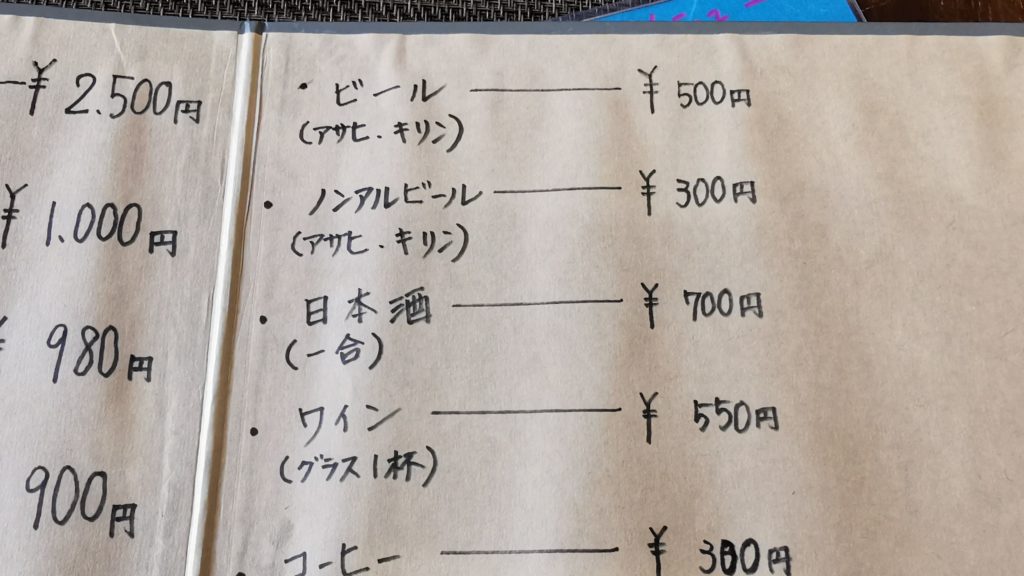 ー¥ 2.500円
¥ 1.000円
980円
900円
・ビール ¥ 500円
(アサヒ・キリン)
・ノンアルビール ¥ 300円
(アサヒ・キリン)
・日本酒 ¥ 700円
(一合)
・ワイン ¥ 550円
(グラス1杯)
・コーヒー ¥ 300円